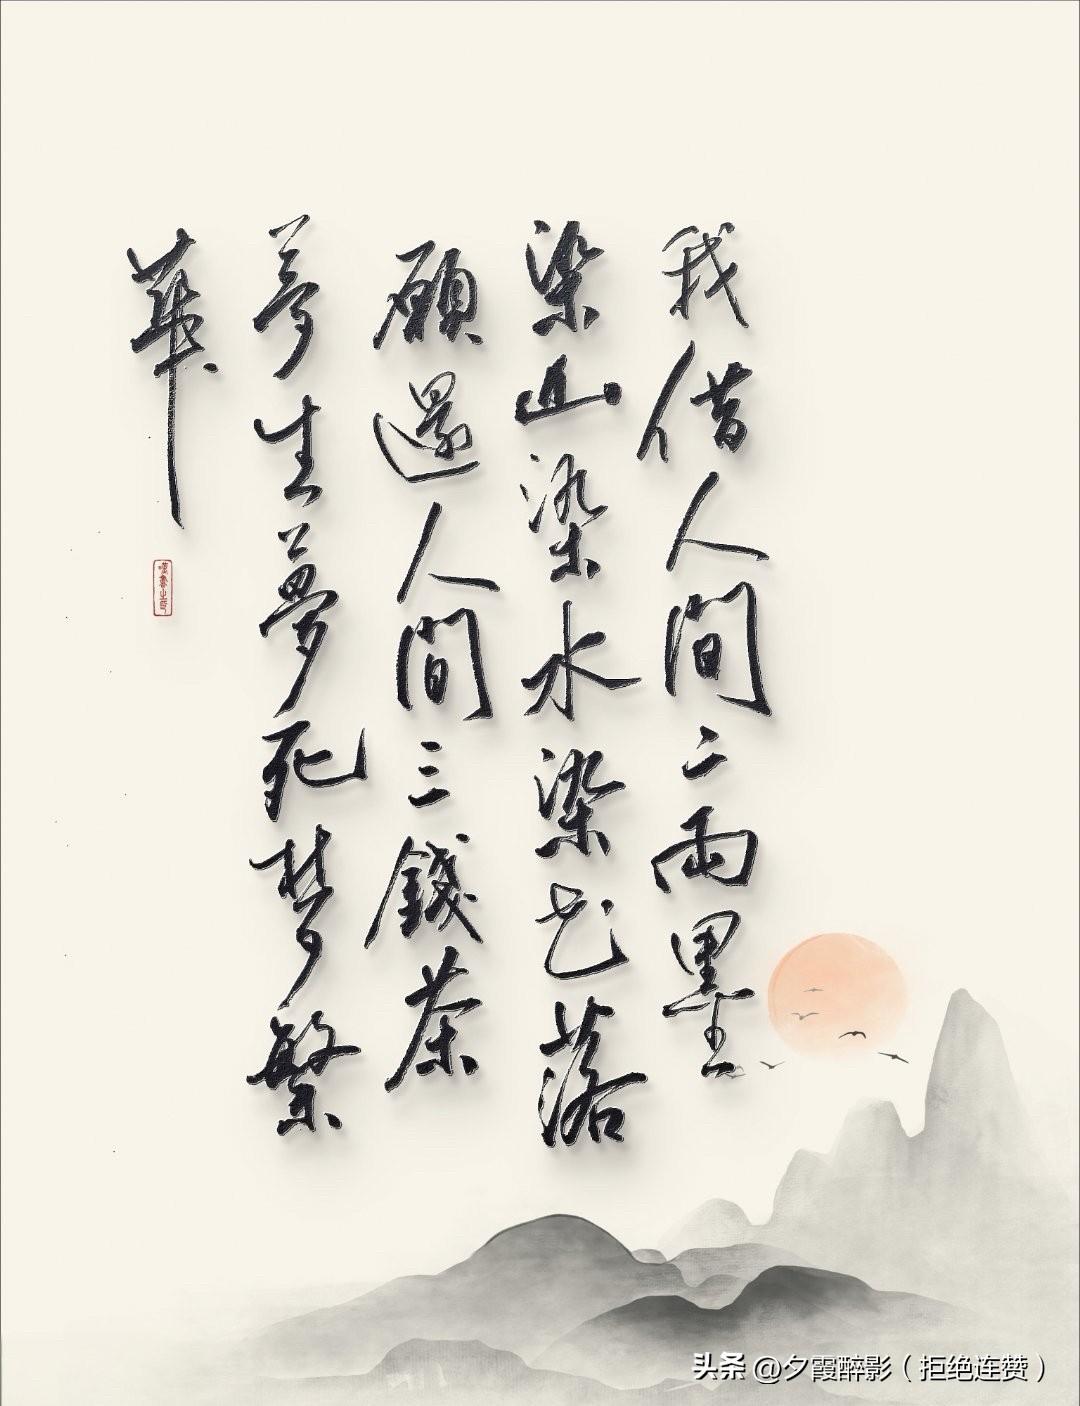 我借人間二兩墨
染山染水染花落
願還人間三錢茶
夢生夢死夢繁
華
头条 @夕霞醉影（拒绝连赞）